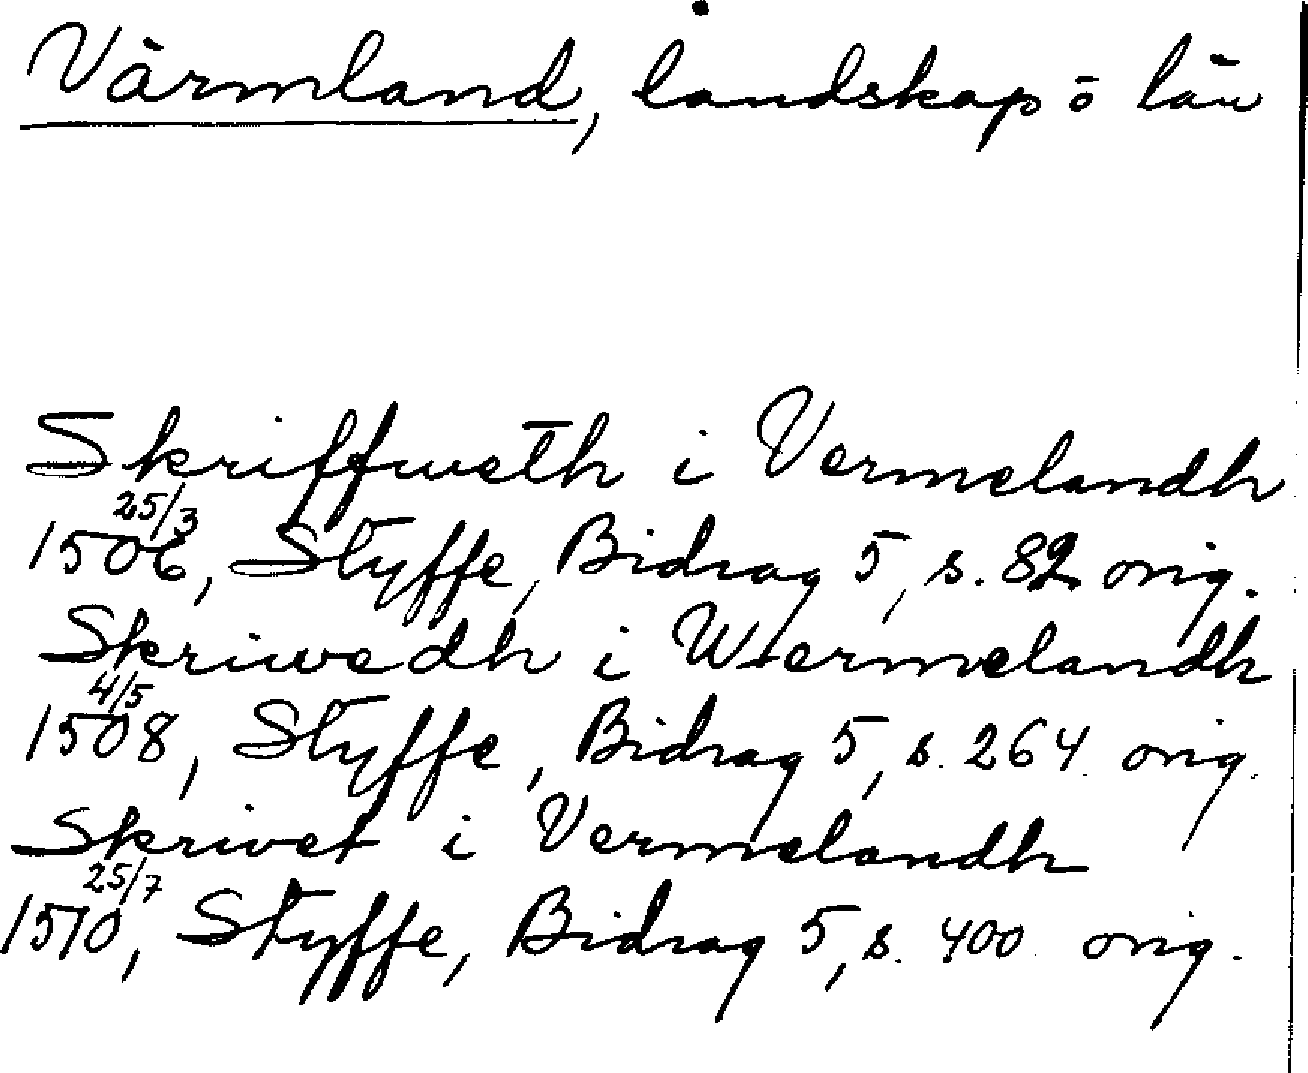 Värmland, landskap o län
Skriffweth i Vermelandh
25/3
1506, Styffe, Bidrag 5, s. 82 orig.
Skriwedh i Wermelandh
4/5
1508, Styffe, Bidrag 5, s. 264 orig.
Skrivet i Vermelandh
25/7
1510, Styffe, Bidrag 5, s. 400 orig.